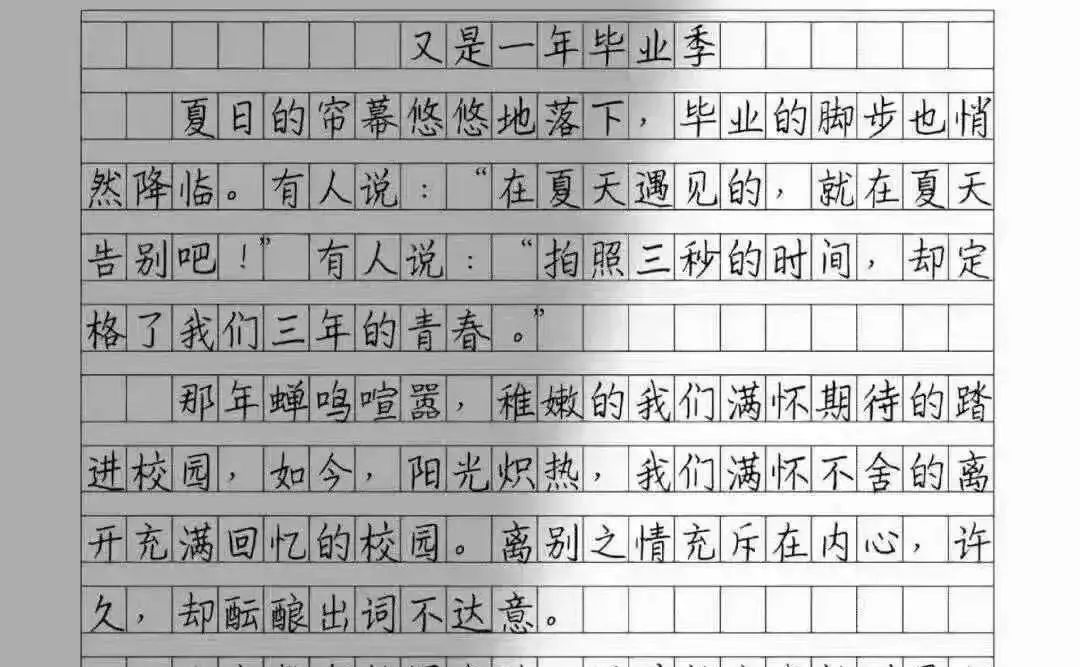 又是一年毕业季
夏日的帘幕悠悠地落下，毕业的脚步也悄
然降临。有人说：“在夏天遇见的，就在夏天
告别吧！”有人说：“拍照三秒的时间，却定
格了我们三年的青春。”
那年蝉鸣喧嚣，稚嫩的我们满怀期待的踏
进校园，如今，阳光炽热，我们满怀不舍的离
开充满回忆的校园。离别之情充斥在内心，许
久，却酝酿出词不达意。